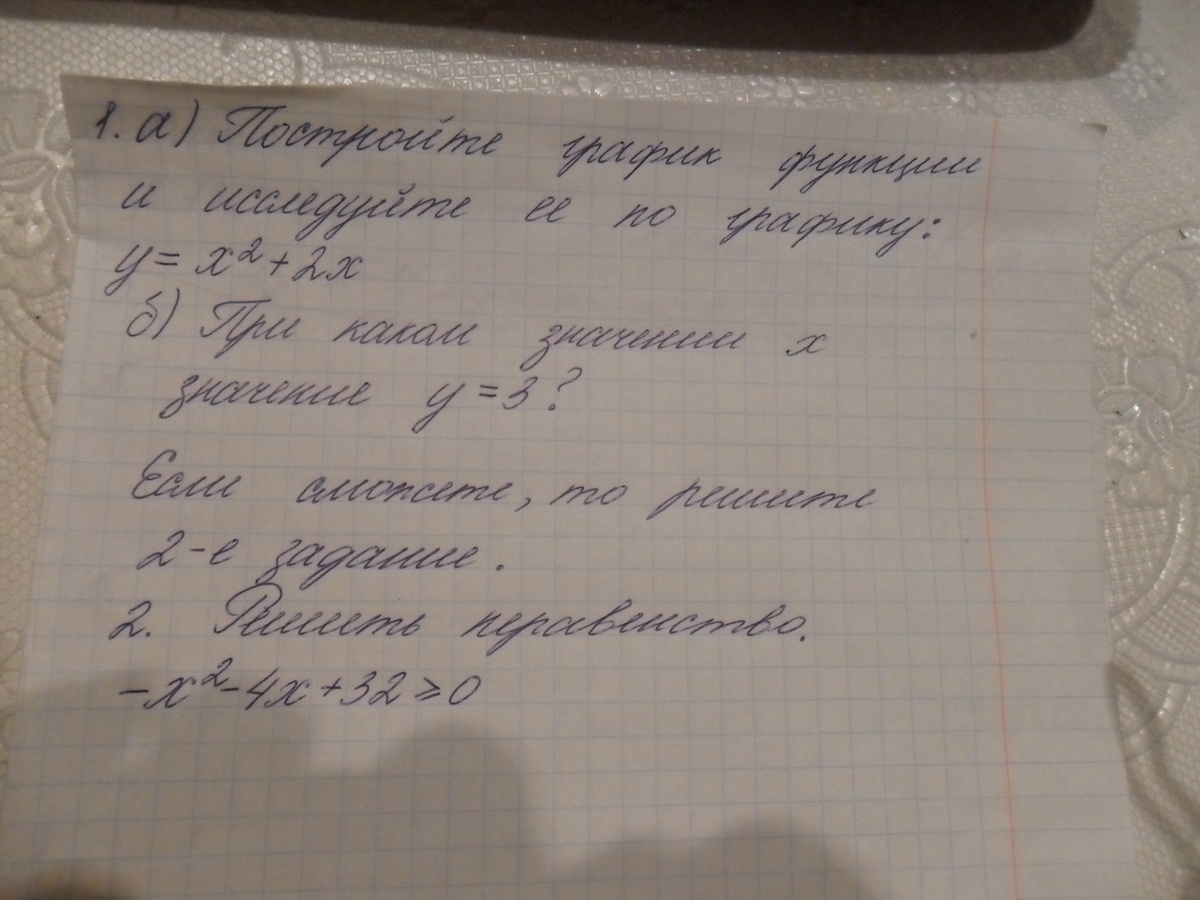 1. а) Постройте график функции
и исследуйте ее по графику:
y = x² + 2x
б) При каком значении x
значение y = 3?
Если сможете, то решите
2-е задание.
2. Решить неравенство.
-x² - 4x + 32 ≥ 0